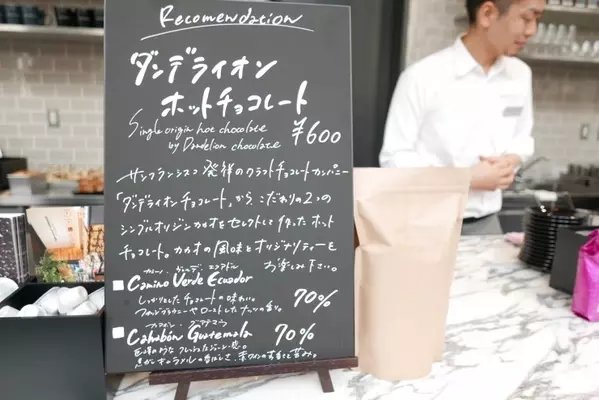 Recomendation
ダンデライオン
ホットチョコレート
Single origin hot chocolate
by Dandelion chocolate
¥600
サンフランシスコ発祥のクラフトチョコレートカンパニー
「ダンデライオンチョコレート」から、こだわりの2つの
シングルオリジンカカオをセレクトして作ったホット
チョコレート。カカオの風味とオリジナリティーを
お楽しみ下さい。
Camino Verde Ecuador
しっかりとしたチョコレートの味わい。
70%
Cahabón Guatemala
70%